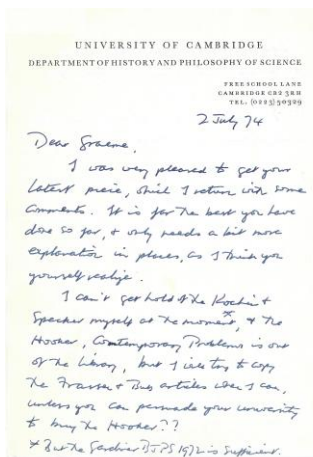 UNIVERSITY OF CAMBRIDGE
DEPARTMENT OF HISTORY AND PHILOSOPHY OF SCIENCE
FREE SCHOOL LANE
CAMBRIDGE CB2 3RH
TEL. (0223) 50329
2 July 74
Dear Graeme,
I was very pleased to get your
latest piece, which I return with some
comments. It is far the best you have
done so far, & only needs a bit more
explanation in places, as I think you
yourself realize.
I can't get hold of the Kochen &
Specker myself at the moment*, & the
Hooker, Contemporary Problems is out
of the library, but I to copy
the & articles when I can,
unless you can persuade your university
to buy the Hooker??
* But the Gardner BJPS 1972 is sufficient.